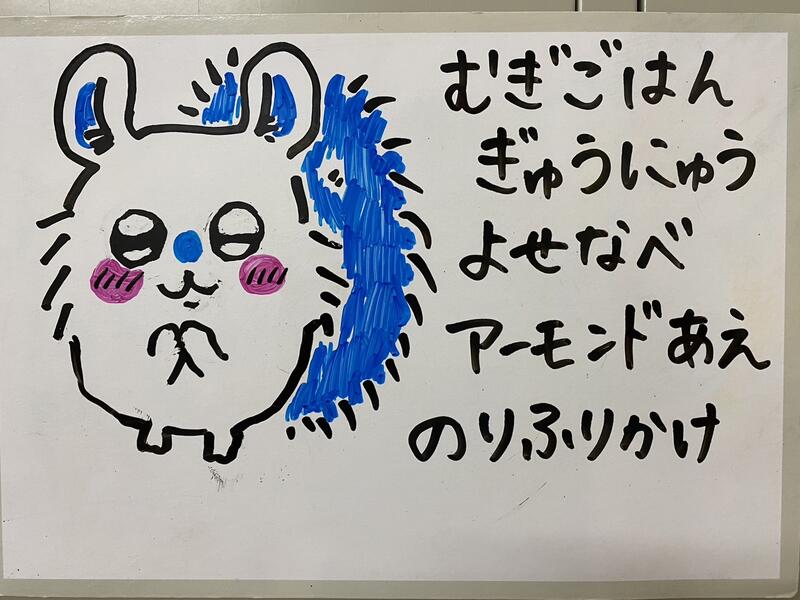 むぎごはん
ぎゅうにゅう
よせなべ
アーモンドあえ
のりふりかけ